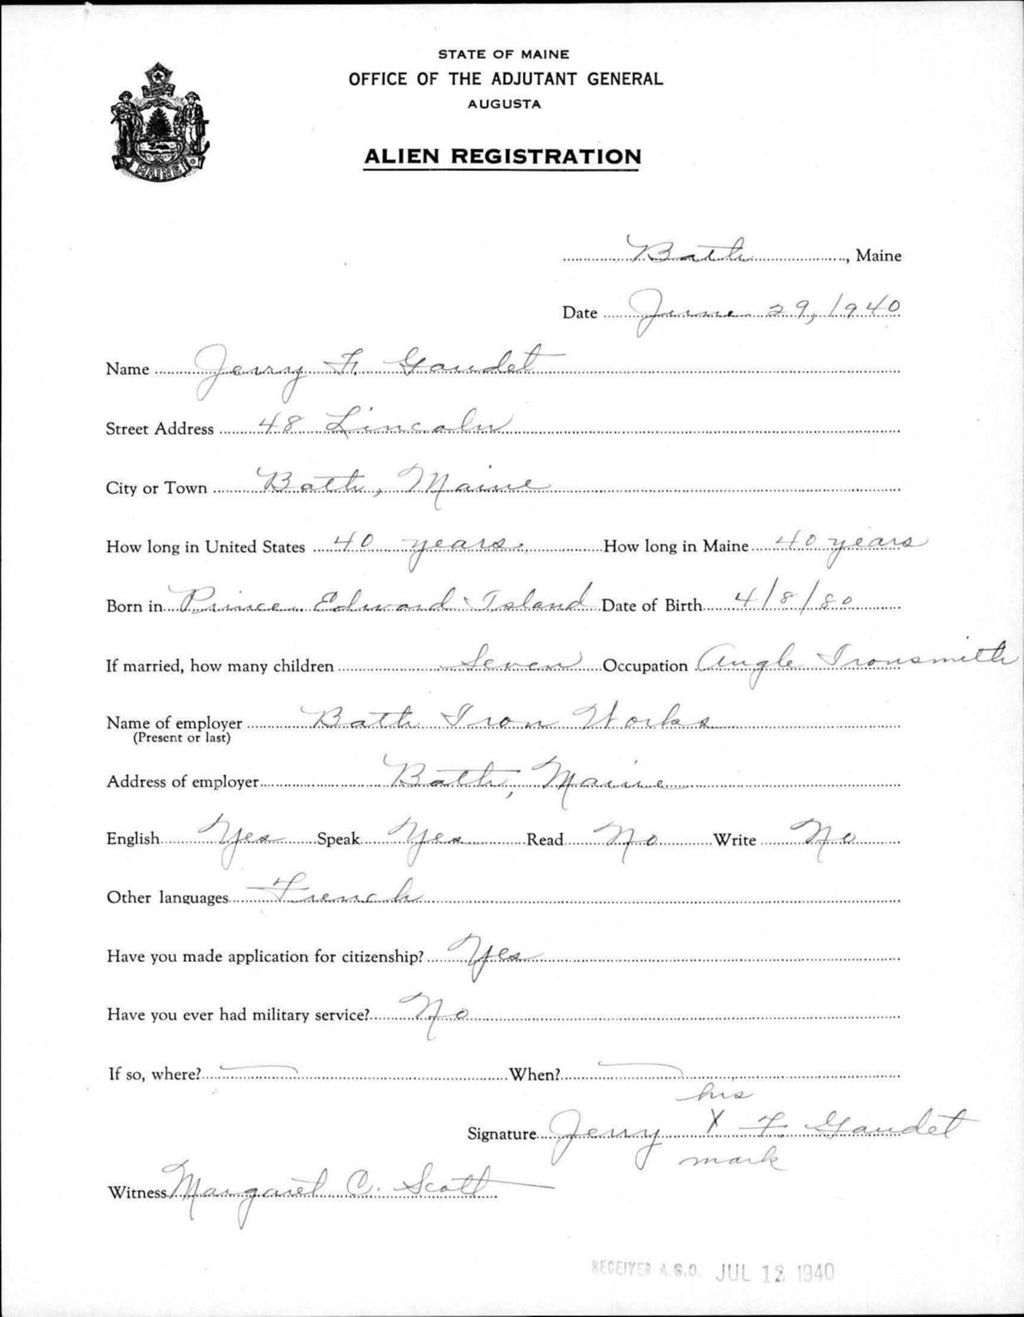 STATE OF MAINE
OFFICE OF THE ADJUTANT GENERAL
AUGUSTA
ALIEN REGISTRATION
MAINE
Bath, Maine
Date June 29, 1940
Name Jerry F. Gaudet
Street Address 48 Lincoln
City or Town Bath, Maine
How long in United States 40 years. How long in Maine 40 years
Born in Prince Edward Island Date of Birth 4/8/80
If married, how many children Seven Occupation Angle Ironsmith
Name of employer Bath Iron Works
(Present or last)
Address of employer Bath, Maine
English Yes Speak Yes Read No Write No
Other languages French
Have you made application for citizenship? Yes
Have you ever had military service? No
If so, where? — When? —
his
Signature Jerry X F. Gaudet
mark
Witness Margaret C. Scott
RECEIVED A.G.O. JUL 12 1940